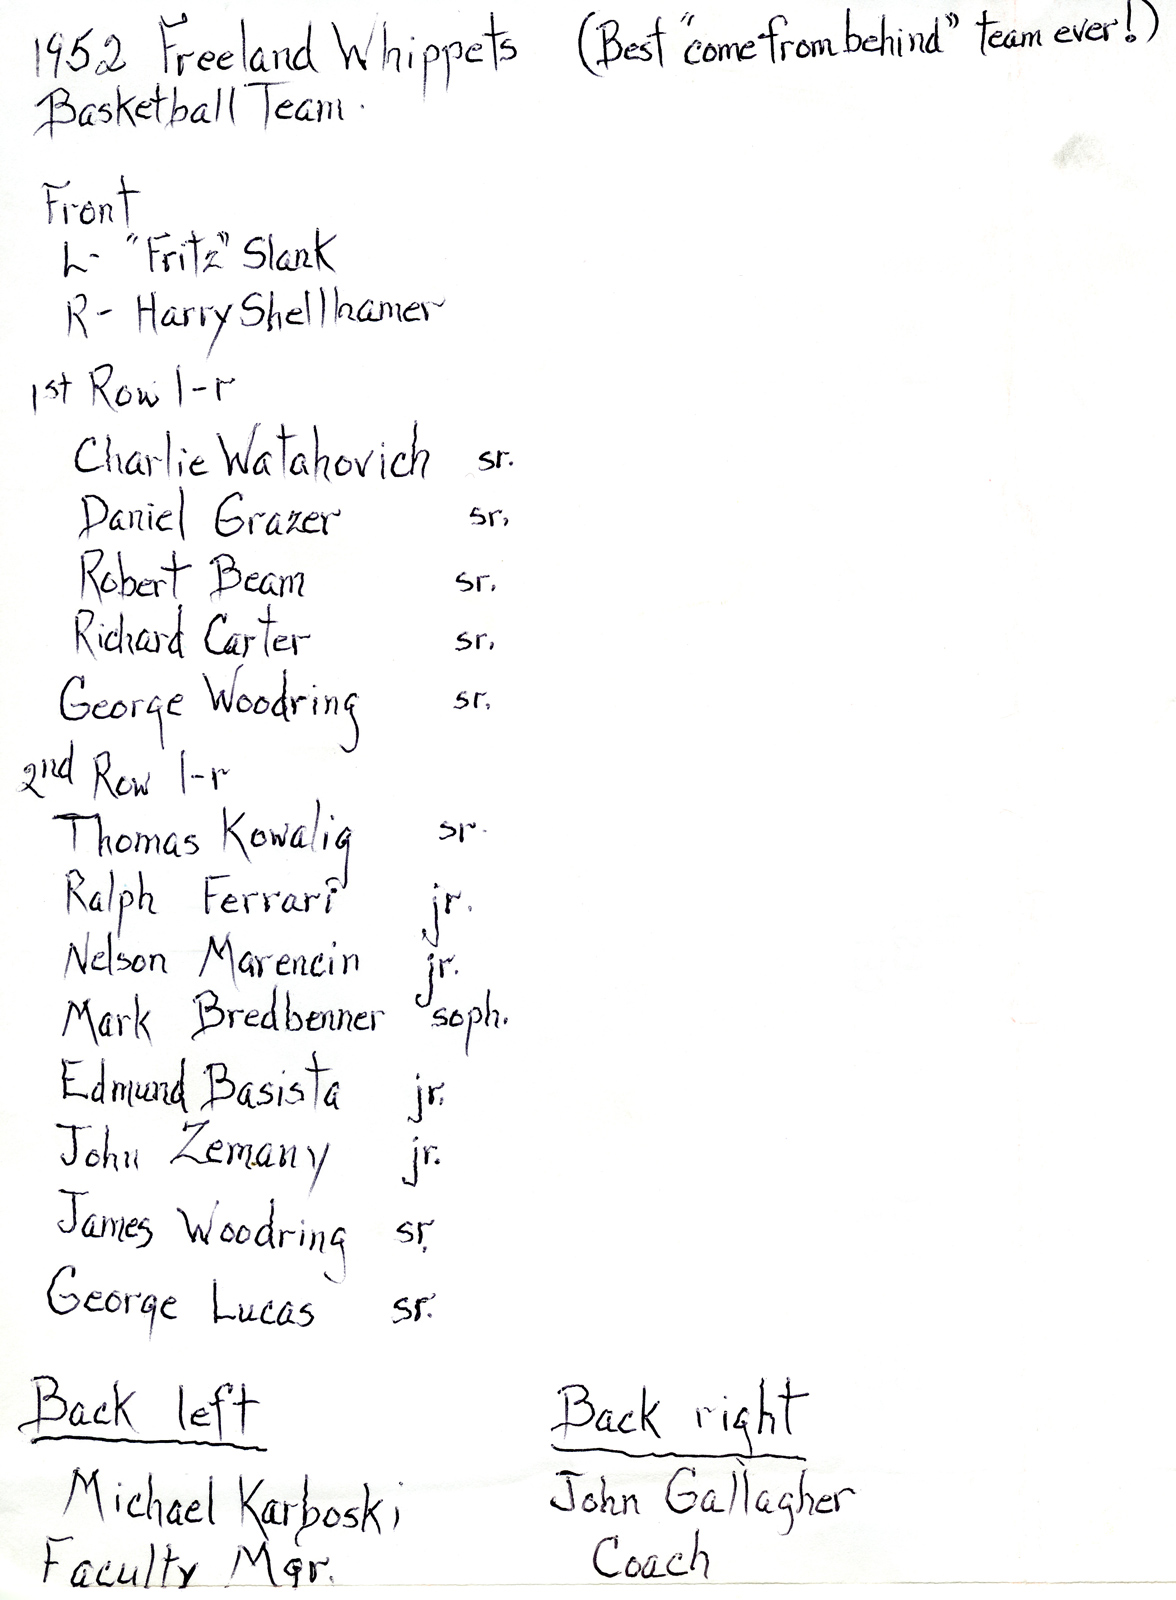 1952 Freeland Whippets (Best "come from behind" team ever!)
Basketball Team.
Front
L- "Fritz" Slank
R- Harry Shellhamer
1st Row l-r
Charlie Watahovich sr.
Daniel Grazer sr.
Robert Beam sr.
Richard Carter sr.
George Woodring sr.
2nd Row l-r
Thomas Kowalig sr.
Ralph Ferrari jr.
Nelson Marencin jr.
Mark Bredbenner soph.
Edmund Basista jr.
John Zemany jr.
James Woodring sr.
George Lucas sr.
Back left Back right
Michael Karboski John Gallagher
Faculty Mgr. Coach